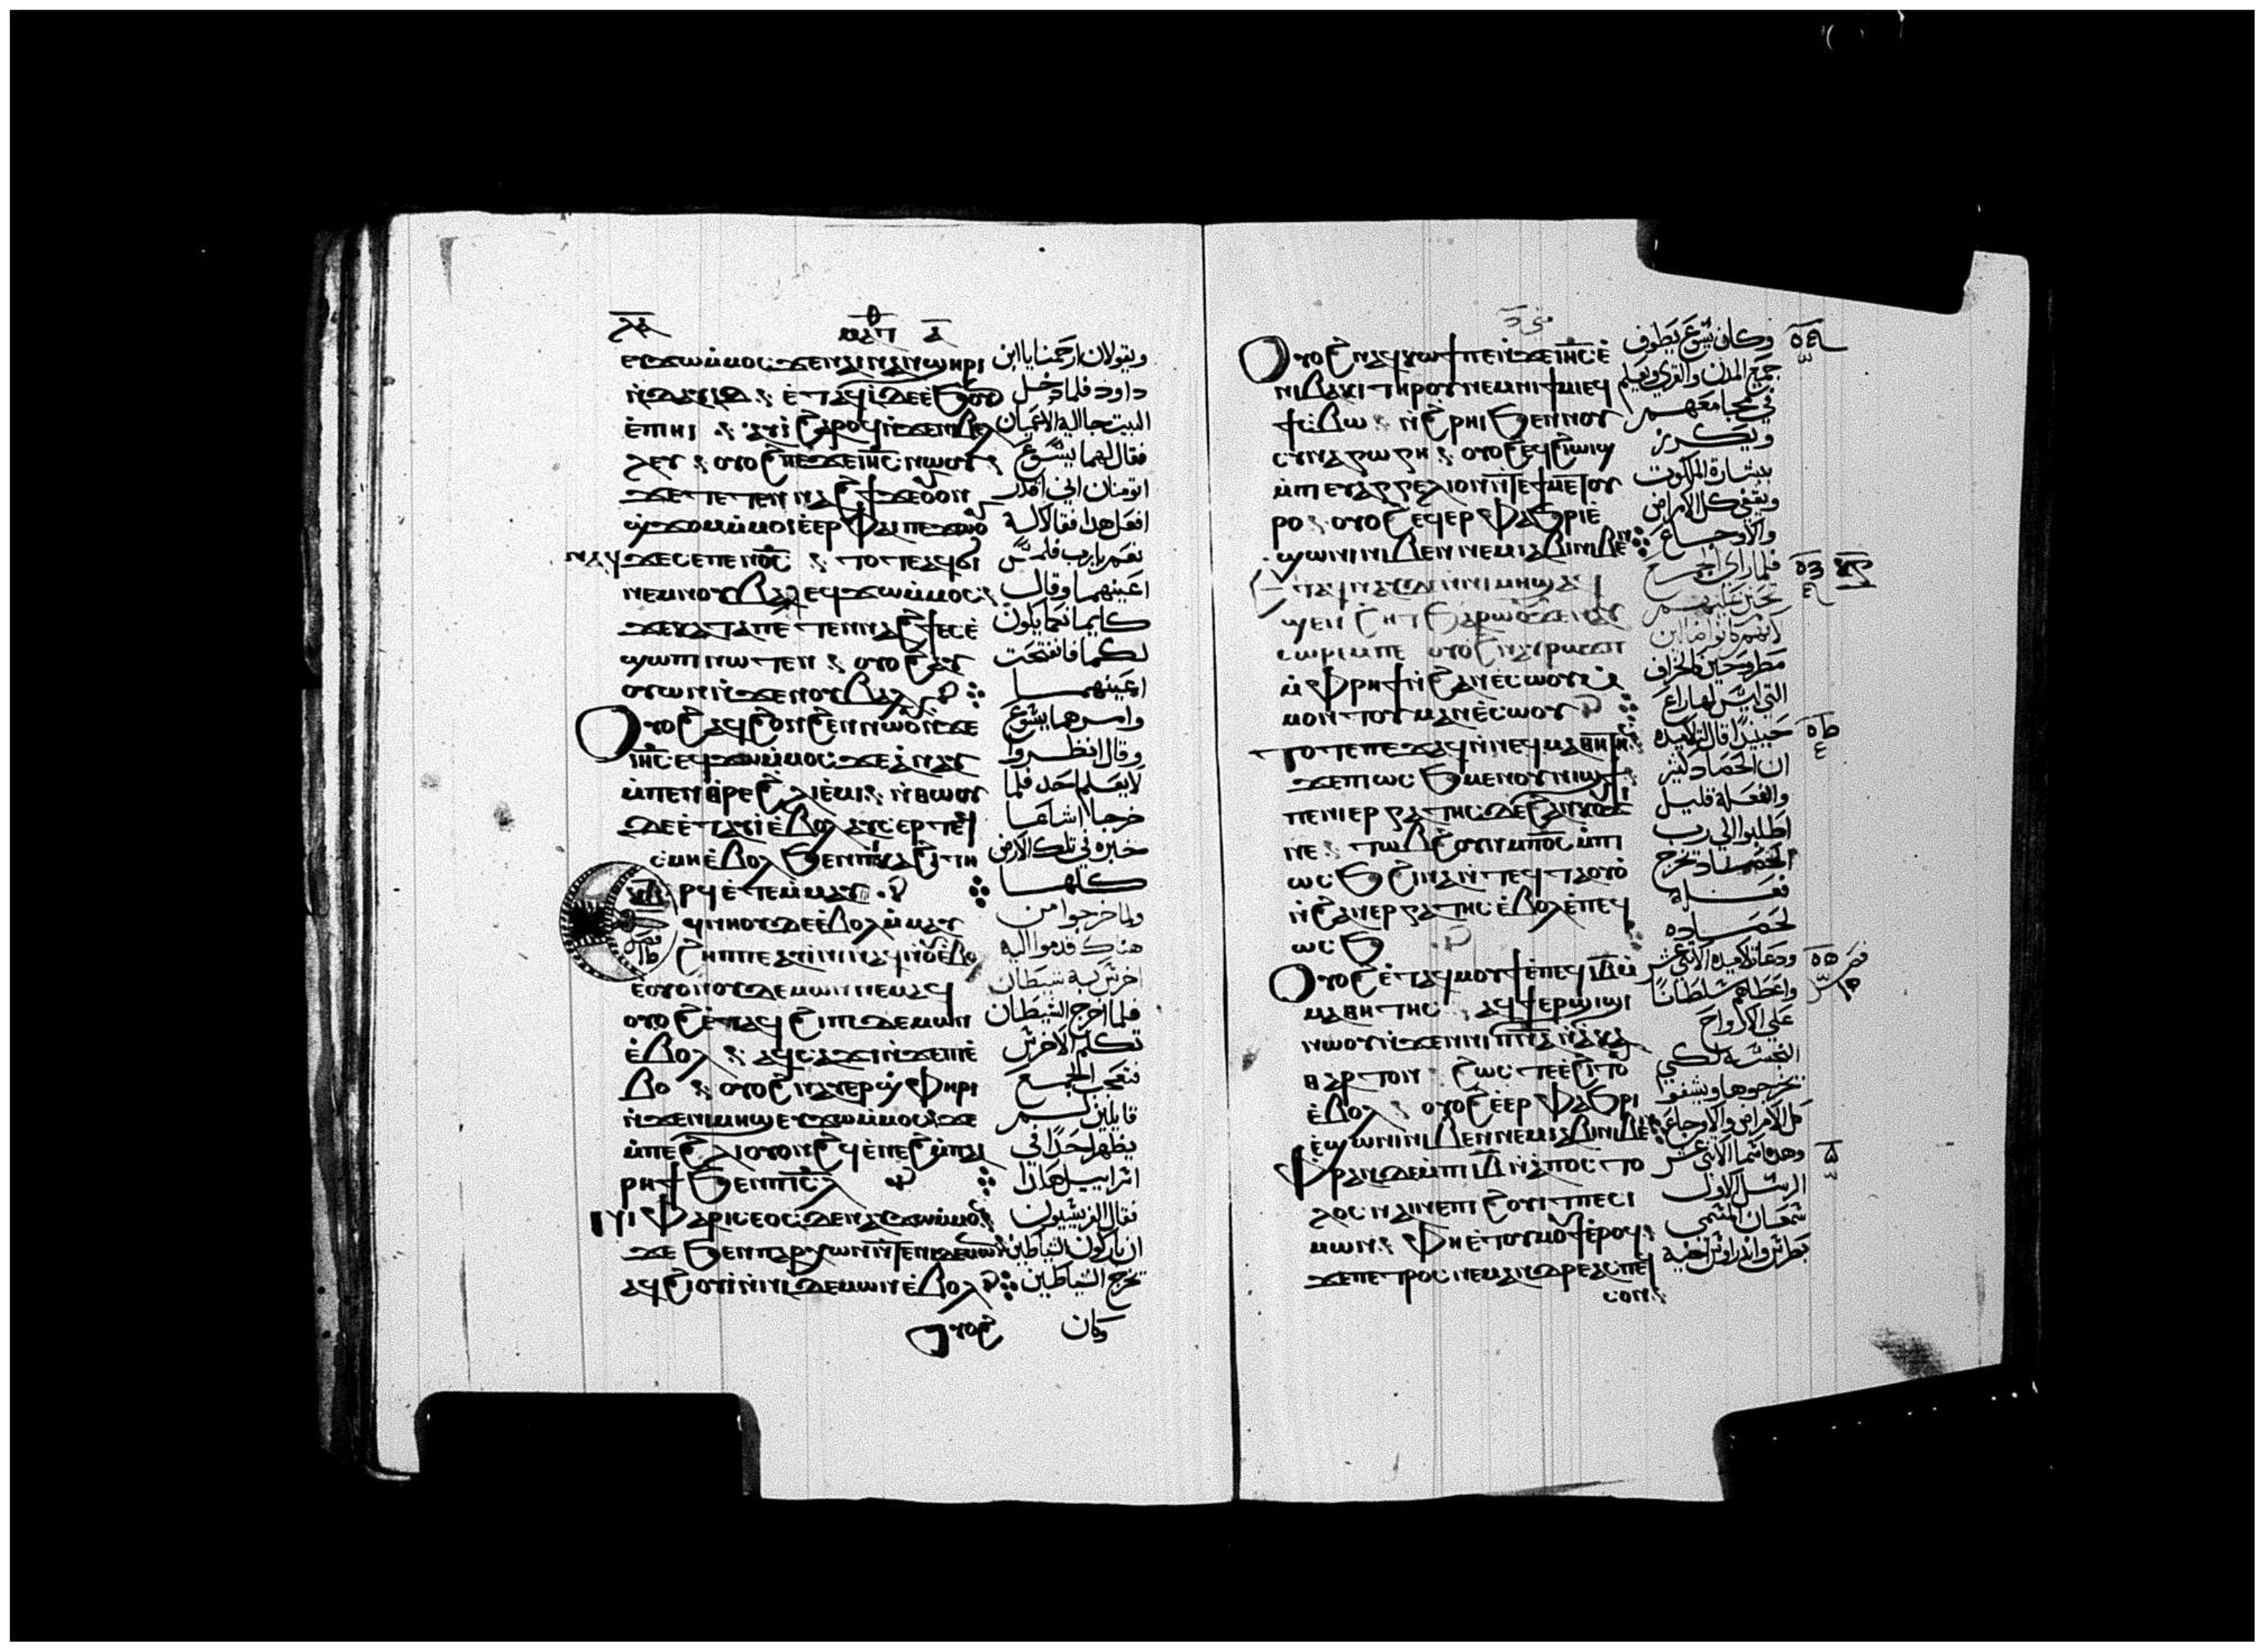 ⲉⲩϫⲱⲙ̀ⲙⲟⲥ ϫⲉ ⲛⲁⲓ ⲛⲁⲛ ⲡϣⲏⲣⲓ
ⲛ̀ⲇⲁⲩⲓⲇ ⲉ̀ⲧⲁϥⲓ̀ ⲇⲉ ⲉ̀ϧⲟⲩⲛ
ⲉ̀ⲡⲏⲓ ⲁⲩⲓ̀ ϩⲁⲣⲟϥ ⲛ̀ϫⲉ ⲛⲓⲃⲉⲗ
ⲗⲉⲩ ⲟⲩⲟϩ ⲡⲉϫⲉ ⲓⲏⲥ ⲛⲱⲟⲩ
ϫⲉ ⲧⲉⲧⲉⲛⲛⲁϩϯ ϫⲉ ⲟⲩⲟⲛ
ϣϫⲟⲙ ⲙ̀ⲙⲟⲓ ⲉ̀ⲉⲣ ⲫⲁⲓ ⲡⲉϫⲱⲟⲩ
ⲛⲁϥ ϫⲉ ⲥⲉ ⲡⲉⲛⲟ̅ⲥ̅ ⲧⲟⲧⲉ ⲁϥϭⲓ
ⲛⲉⲙ ⲛⲟⲩⲃⲁⲗ ⲉϥϫⲱⲙ̀ⲙⲟⲥ
ⲟⲩⲱⲛ ⲛ̀ϫⲉ ⲛⲟⲩⲃⲁⲗ
ⲟⲩⲟϩ ⲁϥϩⲟⲛϩⲉⲛ ⲛⲱⲟⲩ ⲛ̀ϫⲉ
ⲓⲏⲥ ⲉϥϫⲱⲙ̀ⲙⲟⲥ ϫⲉ ⲁ̀ⲛⲁⲩ
ⲙ̀ⲡⲉⲛⲑⲣⲉ ϩⲗⲓ ⲉ̀ⲙⲓ ⲛ̀ⲑⲱⲟⲩ
ⲇⲉ ⲉ̀ⲧⲁⲩⲓ̀ ⲉ̀ⲃⲟⲗ ⲁⲩⲥⲉⲣ ⲡⲉϥ
ⲥⲙⲏ ⲉ̀ⲃⲟⲗ ϧⲉⲛ ⲡⲕⲁϩⲓ ⲧⲏ
ⲣϥ ⲉ̀ⲧⲉⲙ̀ⲙⲁⲩ
ⲉⲟⲩⲟⲛ ⲟⲩⲇⲉⲙⲱⲛ ⲛⲉⲙⲁϥ
ⲟⲩⲟϩ ⲉ̀ⲧⲁϥϩⲓⲡⲓⲇⲉⲙⲱⲛ
ⲉ̀ⲃⲟⲗ ⲁϥⲥⲁϫⲓ ⲛ̀ϫⲉ ⲡⲓⲉ̀
ⲃⲟ ⲟⲩⲟϩ ⲛⲁⲩⲉⲣϣⲫⲏⲣⲓ
ⲛ̀ϫⲉ ⲛⲓⲙⲏϣ ⲉⲩϫⲱⲙ̀ⲙⲟⲥ ϫⲉ
ⲙ̀ⲡⲉ ϩⲗⲓ ⲟⲩⲟⲛϩϥ ⲉ̀ⲛⲉϩ ⲙ̀ⲡⲁⲓ
ⲣⲏϯ ϧⲉⲛ ⲡⲓⲥⲗ
ⲛⲓⲫⲁⲣⲓⲥⲉⲟⲥ ⲇⲉ ⲛⲁⲩϫⲱⲙ̀ⲙⲟⲥ
ϫⲉ ϧⲉⲛ ⲡⲁⲣⲭⲱⲛ ⲛ̀ⲧⲉ ⲛⲓⲇⲉⲙⲱⲛ
ⲁϥϩⲓⲟⲩⲓ̀ ⲛ̀ⲛⲓⲇⲉⲙⲱⲛ ⲉ̀ⲃⲟⲗ
ⲟⲩⲟϩ
ويقولان ارحمنا يا ابن
داود فلما دخل
البيت جا اليه الاعميان
فقال لهما يسوع
اتومنان اني اقدر
افعل هذا فقالا له
نعم يا رب فلمس
اعينهما وقال
كايمانكما يكون
لكما فانفتحت
اعينهما
وامرهما يسوع
وقال انظروا
لا يعلم احد فلما
خرجا اشاعا
خبره في تلك الارض
كلها
ولما خرجوا من
هناك قدموا اليه
اخرس به شيطان
فلما اخرج الشيطان
تكلم الاخرس
فتعجب الجمع
قايلين لم
يظهر احدا في
اسراييل هكذا
فقال الفريسيون
ان باركون الشياطين
يخرج الشياطين
وكان
ⲟⲩⲟϩ ⲛⲁϥⲕⲱϯ ⲡⲉ ⲛ̀ϫⲉ ⲓⲏⲥ ⲉ̀
ⲛⲓⲃⲁⲕⲓ ⲧⲏⲣⲟⲩ ⲛⲉⲙ ⲛⲓϯⲙⲓ ⲉϥ
ϯⲥⲃⲱ ⲛ̀ϩⲣⲏⲓ ϧⲉⲛ ⲛⲟⲩ
ⲥⲩⲛⲁⲅⲱⲅⲏ ⲟⲩⲟϩ ⲉϥϩⲓⲱⲓϣ
ⲙ̀ⲡⲉⲩⲁⲅⲅⲉⲗⲓⲟⲛ ⲛ̀ⲧⲉ ϯⲙⲉⲧⲟⲩ
ⲣⲟ ⲟⲩⲟϩ ⲉϥⲉⲣⲫⲁϧⲣⲓ ⲉ̀
ϣⲱⲛⲓ ⲛⲓⲃⲉⲛ ⲛⲉⲙ ⲓⲁⲃⲓ ⲛⲓⲃⲉⲛ
ϣⲉⲛϩⲏⲧ ϧⲁⲣⲱⲟⲩ ϫⲉ ⲛⲁⲩ
ⲙ̀ⲫⲣⲏϯ ⲛ̀ϩⲁⲛⲉ̀ⲥⲱⲟⲩ ⲙ̀
ⲙⲟⲛ ⲧⲟⲩ ⲙⲁⲛⲉ̀ⲥⲱⲟⲩ
ⲧⲟⲧⲉ ⲡⲉϫⲁϥ ⲛ̀ⲛⲉϥⲙⲁⲑⲏⲧⲏⲥ
ϫⲉ ⲡⲓⲱⲥϧ ⲙⲉⲛ ⲟⲩⲛⲓϣϯ
ⲡⲉ ⲛⲓⲉⲣⲅⲁⲧⲏⲥ ⲇⲉ ϩⲁⲛⲕⲟⲩϫⲓ
ⲛⲉ ⲧⲱⲃϩ ⲟⲩⲛ ⲙ̀ⲡⲟ̅ⲥ̅ ⲙ̀ⲡⲓ
ⲱⲥϧ ϩⲓⲛⲁ ⲛ̀ⲧⲉϥⲧⲁⲟⲩⲟ̀
ⲛ̀ϩⲁⲛⲉⲣⲅⲁⲧⲏⲥ ⲉ̀ⲃⲟⲗ ⲉ̀ⲡⲉϥ
ⲱⲥϧ
ⲟⲩⲟϩ ⲉ̀ⲧⲁϥⲙⲟⲩϯ ⲉ̀ⲡⲉϥⲓ̅ⲃ̅ ⲙ̀
ⲙⲁⲑⲏⲧⲏⲥ ⲁϥϯⲉⲣϣⲓϣⲓ
ⲛⲱⲟⲩ ⲛ̀ϫⲉⲛ ⲛⲓⲡ̅ⲛ̅ⲁ̅ ⲛ̀ⲁⲕⲁ
ⲑⲁⲣⲧⲟⲛ ϩⲱⲥⲧⲉ ⲉ̀ϩⲓⲧⲟⲩ
ⲉ̀ⲃⲟⲗ ⲟⲩⲟϩ ⲉ̀ⲉⲣⲫⲁϧⲣⲓ
ⲉ̀ϣⲱⲛⲓ ⲛⲓⲃⲉⲛ ⲛⲉⲙ ⲓⲁⲃⲓ ⲛⲓⲃⲉⲛ
ⲫⲣⲁⲛ ⲇⲉ ⲙ̀ⲡⲓⲓ̅ⲃ̅ ⲛ̀ⲁⲡⲟⲥⲧⲟ
ⲗⲟⲥ ⲛⲁⲓ ⲛⲉ ⲡⲓϩⲟⲩⲓⲧ ⲡⲉ ⲥⲓ
ⲙⲱⲛ ⲫⲏⲉ̀ⲧⲟⲩⲙⲟⲩϯ ⲉ̀ⲣⲟϥ
ϫⲉ ⲡⲉⲧⲣⲟⲥ ⲛⲉⲙ ⲁⲛⲇⲣⲉⲁⲥ ⲡⲉϥ
ⲥⲟⲛ
وكان يسوع يطوف
جميع المدن والقرى ويعلم
في مجامعهم
ويكرز
ببشارة الملكوت
ويشفي كل الامراض
والاوجاع
فلما راى الجمع
تحنن عليهم
لانهم كانوا ضالين
مطروحين كالخراف
التي ليس لها راع
حينيذ قال لتلاميذه
ان الحصاد كثير
والفعلة قليل
اطلبوا الى رب
الحصاد يخرج
فعلة
لحصاده
ودعا تلاميذه الاثني عشر
واعطاهم سلطانا
على الارواح
النجسة لكي
يخرجوها ويشفوا
كل الامراض والاوجاع
وهذه اسما الاثني عشر
الرسل الاول
سمعان المسمى
بطرس واندراوس اخيه